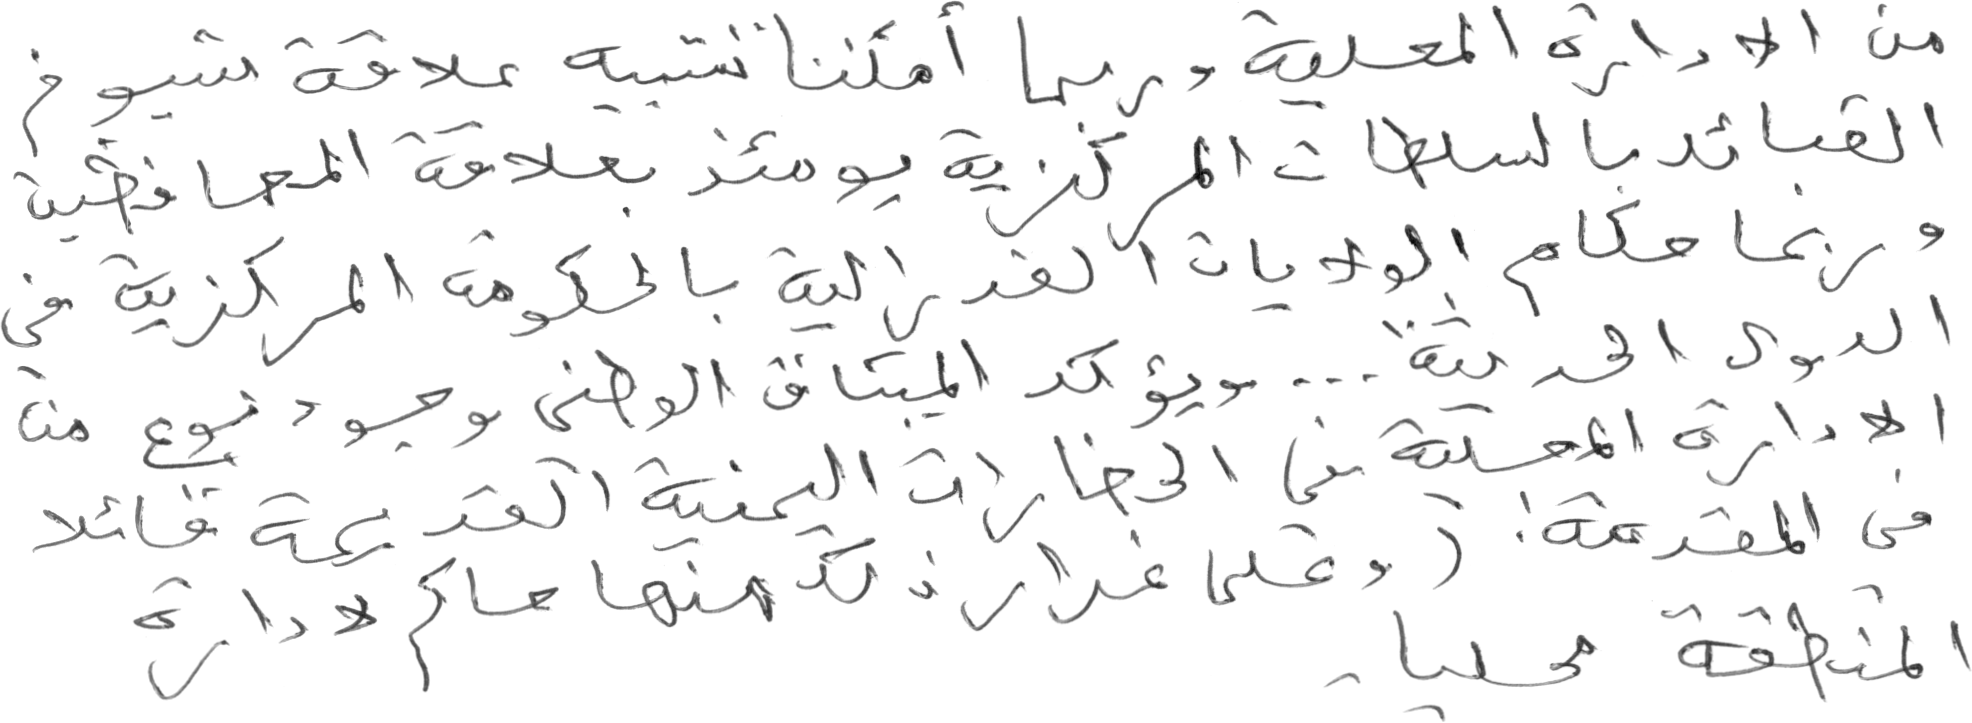 من الادارة المحلية وربما أمكننا تشبيه علاقة شيوخ
القبائل بالسلطات المركزية يومئذ بعلاقة المحافظين
وربما حكام الولايات الفدرالية بالحكومة المركزية في
الدول الحديثة ... ويؤكد الميثاق الوطني وجود نوع من
الادارة المحلية في الحضارات اليمنية القديمة قائلا
في المقدمة: (وعلى غرار ذلك منها حاكم لادارة
المنطقة محليا